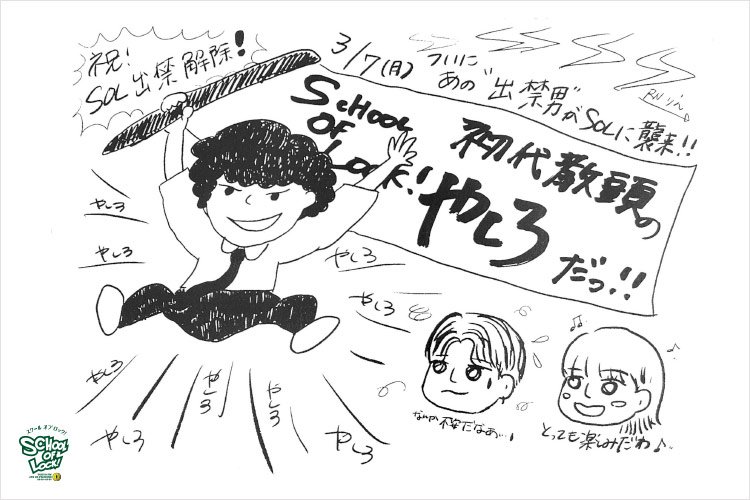 祝!
SOL出禁解除!
3/7(月)
ついに
あの"出禁男"がSOLに襲来!!
SCHOOL
OF
LOCK!
初代教頭の
やしろ
だっ!!
やしろ
やしろ
やしろ
やしろ
やしろ
やしろ
やしろ
やしろ
やしろ
なんか不安だなぁ…!
とっても楽しみだわ♪
スクール オブ ロック!
SCHOOL
OF
LOCK!